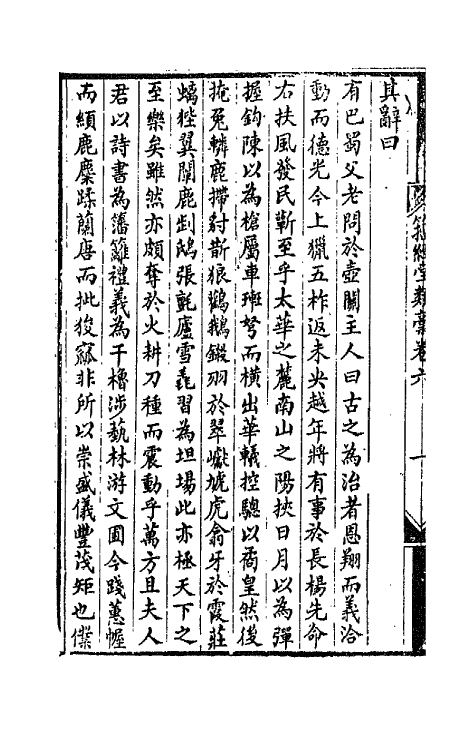 其辭曰
有巴蜀父老問於壺關主人曰古之為治者恩翔而義洽
動而德光今上獵五柞返未央越年將有事於長楊先命
右扶風發民蘄至乎太華之麓南山之陽挾日月以為彈
握鈎陳以為槍屬車班弩而橫出華轙控驄以矞皇然後
掩兔轔鹿㩎豺斮狼鸛鵝鎩羽於翠巘虓虎翕牙於霞莊
螭狴翼闌鹿剒鴆張氈廬雪毳習為坦場此亦極天下之
至樂矣雖然亦頗奪於火耕刀種而震動乎萬方且夫人
君以詩書為藩籬禮義為干櫓涉藝林游文囿今踐蕙幄
而纈鹿麋蹂蘭唐而批狻㺄非所以崇盛儀豐茂矩也僕
經堂類稾卷六
一